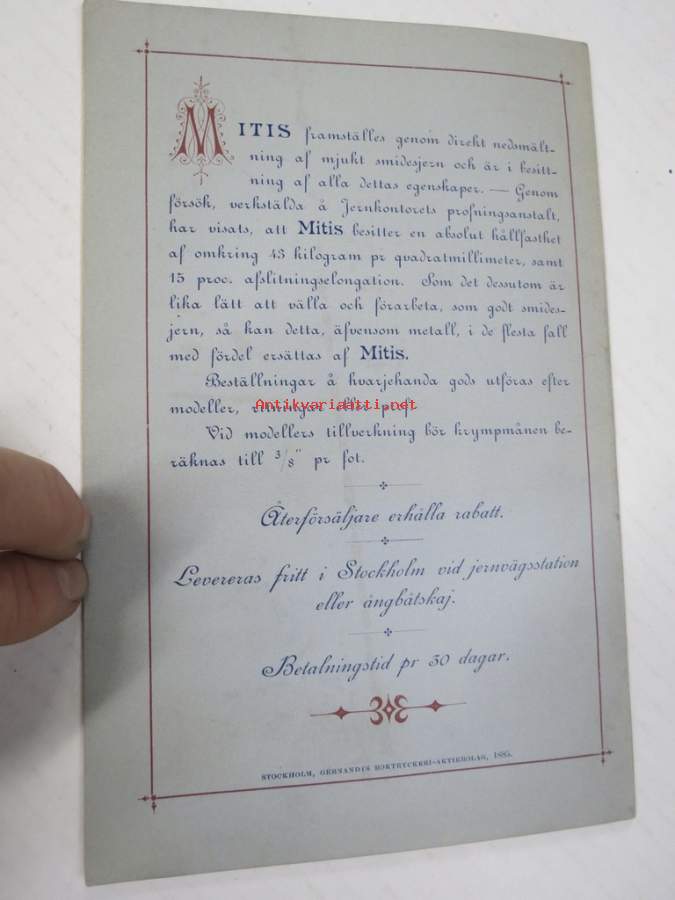 MITIS framställes genom direkt nedsmält-
ning af mjukt smidesjern och är i besitt-
ning af alla dettas egenskaper. — Genom
försök, verkstälda å Jernkontorets profningsanstalt,
har visats, att Mitis besitter en absolut hållfasthet
af omkring 43 kilogram pr qvadratmillimeter, samt
15 proc. afslitningselongation. Som det dessutom är
lika lätt att välla och förarbeta, som godt smides-
jern, så kan detta, äfvensom metall, i de flesta fall
med fördel ersättas af Mitis.
Beställningar å hvarjehanda gods utföras efter
modeller, ritningar eller prof.
Antikvariaatti.net
Vid modellers tillverkning bör krympmånen be-
räknas till 3/8" pr fot.
Återförsäljare erhålla rabatt.
Levereras fritt i Stockholm vid jernvägsstation
eller ångbåtskaj.
Betalningstid pr 30 dagar.
STOCKHOLM, GERNANDTS BOKTRYCKERI-AKTIEBOLAG, 1885.